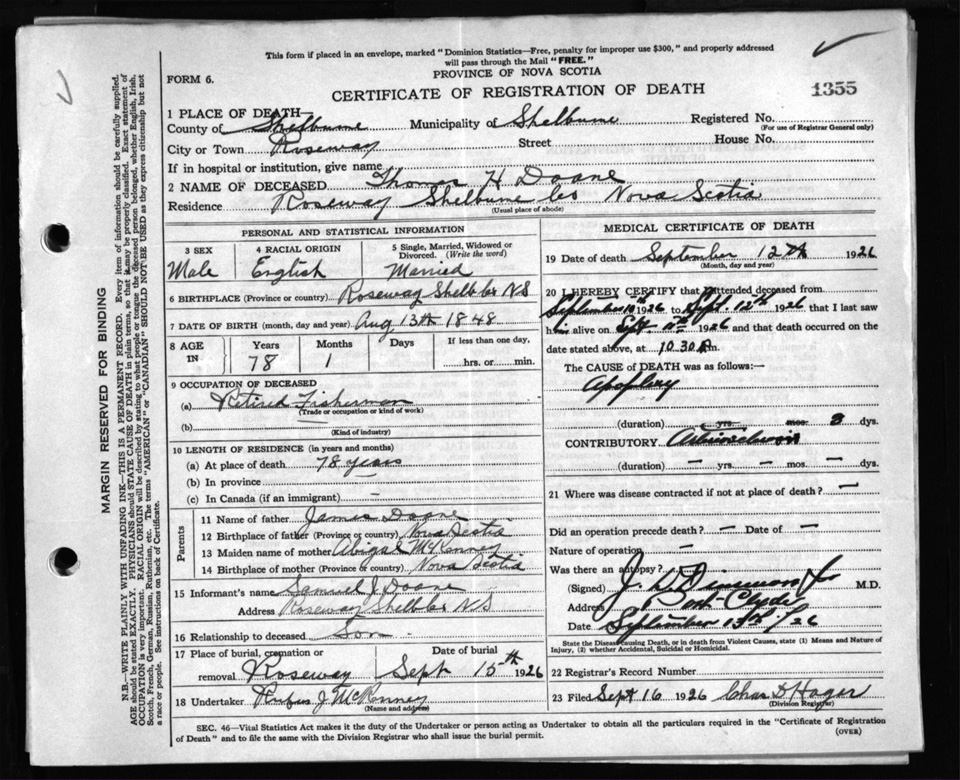 This form if placed in an envelope, marked "Dominion Statistics—Free, penalty for improper use $300," and properly addressed
will pass through the Mail "FREE."
PROVINCE OF NOVA SCOTIA
FORM 6.
CERTIFICATE OF REGISTRATION OF DEATH
1355
1 PLACE OF DEATH—
County of Shelburne Municipality of Shelburne Registered No.
(For use of Registrar General only)
City or Town Roseway Street House No.
If in hospital or institution, give name
2 NAME OF DECEASED Thomas H Doane
Residence Roseway Shelburne Co Nova Scotia
(Usual place of abode)
PERSONAL AND STATISTICAL INFORMATION
3 SEX 4 RACIAL ORIGIN 5 Single, Married, Widowed or
Divorced. (Write the word)
Male English Married
6 BIRTHPLACE (Province or country) Roseway Shelb Co NS
7 DATE OF BIRTH (month, day and year) Aug 13th 1848
8 AGE IN Years Months Days If less than one day,
78 1 hrs. or min.
9 OCCUPATION OF DECEASED
(a) Retired Fisherman
(Trade or occupation or kind of work)
(b)
(Kind of industry)
10 LENGTH OF RESIDENCE (in years and months)
(a) At place of death 78 years
(b) In province
(c) In Canada (if an immigrant) —
Parents
11 Name of father James Doane
12 Birthplace of father (Province or country) Nova Scotia
13 Maiden name of mother Abigal McKenney
14 Birthplace of mother (Province or country) Nova Scotia
15 Informant's name Samuel J. Doane
Address Roseway Shelb Co NS
16 Relationship to deceased Son
17 Place of burial, cremation or Date of burial
removal Roseway Sept 15th 1926
18 Undertaker Rufus J McKenney
(Name and address)
MEDICAL CERTIFICATE OF DEATH
19 Date of death September 12th 1926
(Month, day and year)
20 I HEREBY CERTIFY that I attended deceased from
September 10th 1926 to Sept. 12th 1926 that I last saw
him alive on Sept 11th 1926 and that death occurred on the
date stated above, at 10.30 m.
The CAUSE of DEATH was as follows:—
(duration) yrs. mos. dys.
CONTRIBUTORY
(duration) — yrs. — mos. — dys.
21 Where was disease contracted if not at place of death? —
Did an operation precede death? — Date of —
Nature of operation —
Was there an autopsy?
(Signed) M.D.
Address Port Clyde
Date September 13th/26
State the Disease causing Death, or in death from Violent Causes, state (1) Means and Nature of
Injury, (2) whether Accidental, Suicidal or Homicidal.
22 Registrar's Record Number
23 Filed Sept 16 1926 Chas D Hager
(Division Registrar)
SEC. 46—Vital Statistics Act makes it the duty of the Undertaker or person acting as Undertaker to obtain all the particulars required in the "Certificate of Registration
of Death" and to file the same with the Division Registrar who shall issue the burial permit.
(OVER)
MARGIN RESERVED FOR BINDING
N.B.—WRITE PLAINLY WITH UNFADING INK—THIS IS A PERMANENT RECORD. Every item of information should be carefully supplied.
AGE should be stated EXACTLY. PHYSICIANS should STATE CAUSE OF DEATH in plain terms, so that it may be properly classified. Exact statement of
OCCUPATION is very important. RACIAL ORIGIN will be described by stating to what people or tongue the deceased person belonged, whether English, Irish,
Scotch, French, German, Russian, Ruthenian, etc. The terms "AMERICAN" or "CANADIAN" SHOULD NOT BE USED as they express citizenship but not
a race or people. See instructions on back of Certificate.